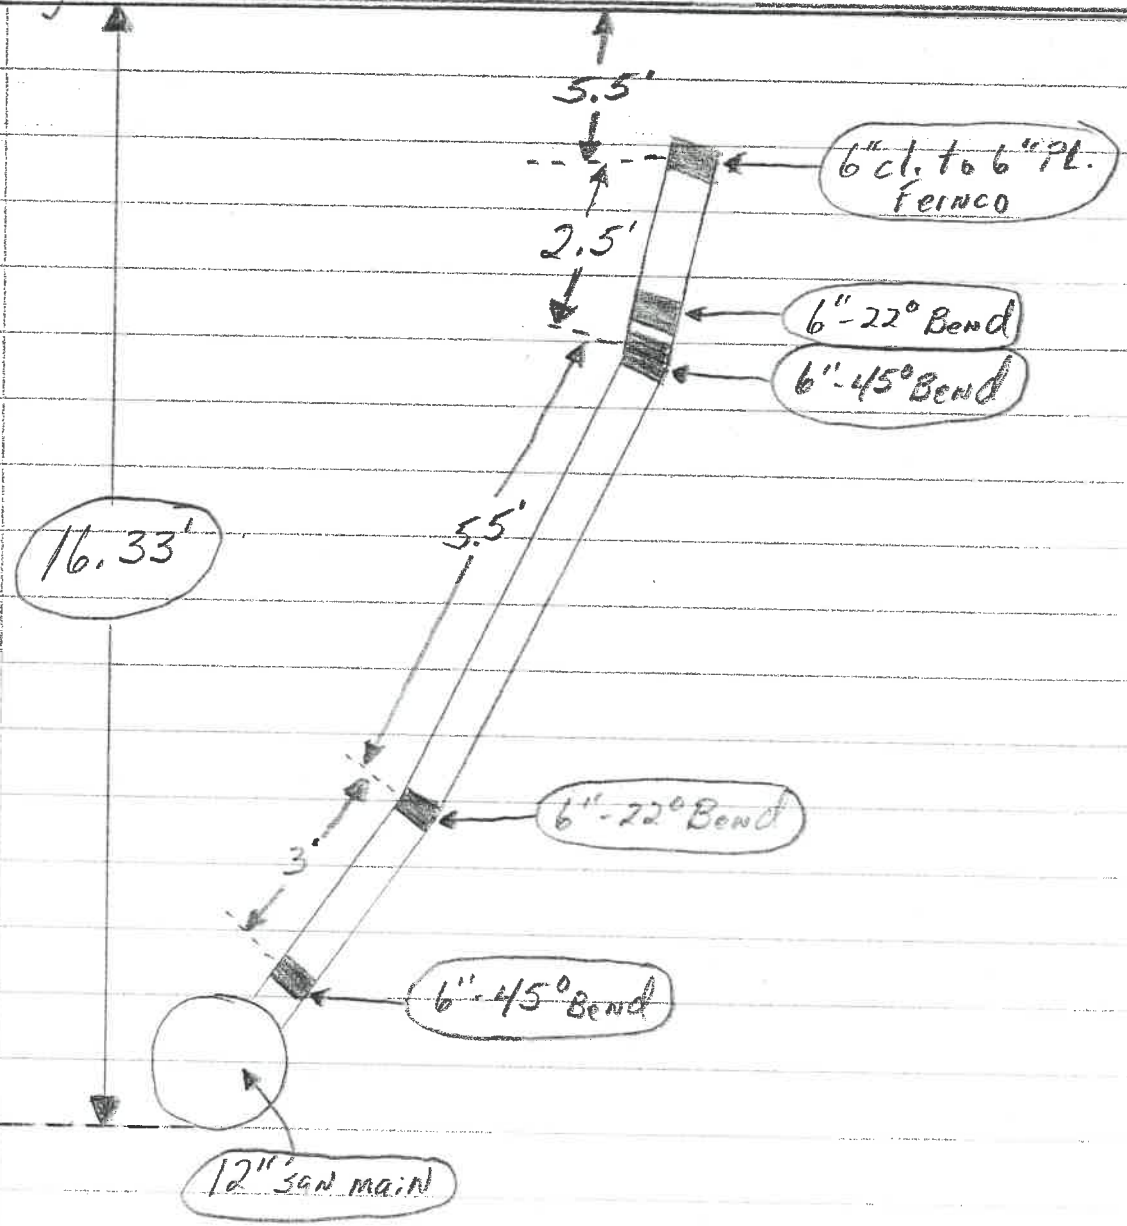 5.5'
6" cl. to 6" PL.
Fernco
2.5'
6"-22° Bend
6"-45° Bend
5.5'
16.33'
6"-22° Bend
3'
6"-45° Bend
12" san main